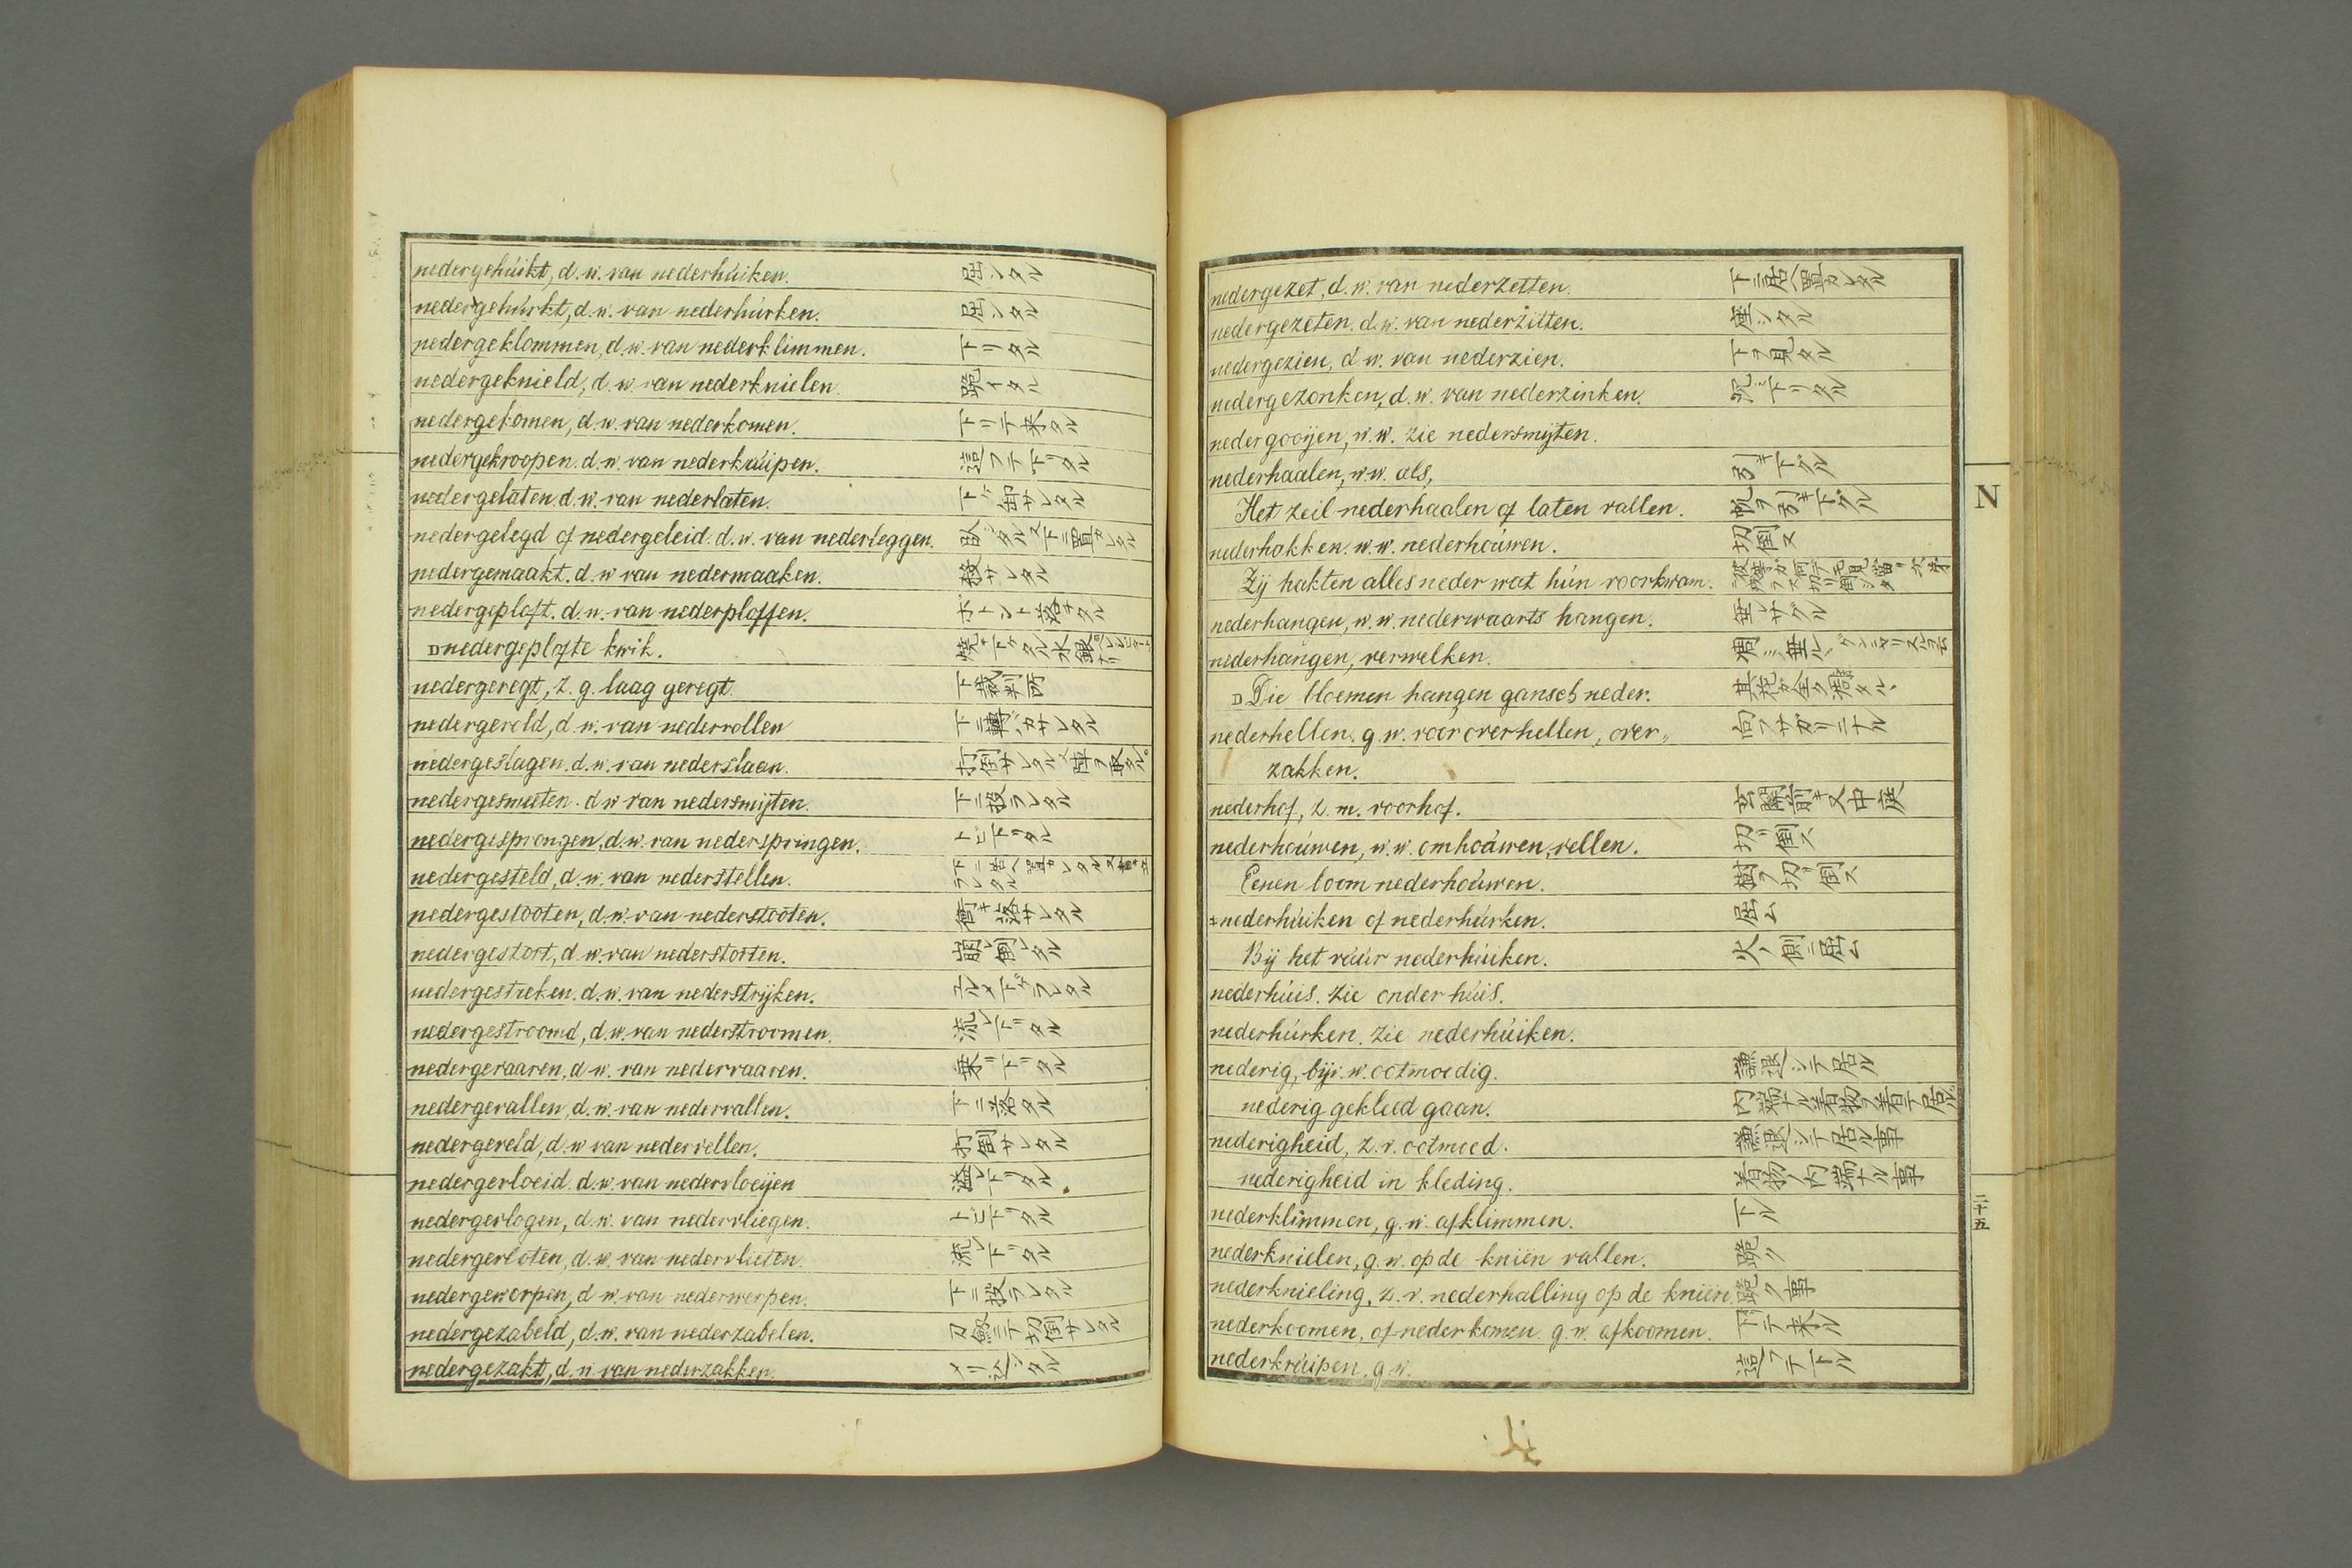 nedergehúikt, d.w. van nederhúiken. 屈ンタル
nedergehúrkt, d.w. van nederhúrken. 屈ンタル
nedergeklommen, d.w. van nederklimmen. 下リタル
nedergeknield, d.w. van nederknielen. 跪イタル
nedergekomen, d.w. van nederkomen. 下リテ来タル
nedergekroopen. d.w. van nederkrúipen. 這フテ下リタル
nedergelaten. d.w. van nederlaten. 下ゲ卸サレタル
nedergelegd of nedergeleid. d.w. van nederleggen. 臥シタル又下ニ置カレタル
nedergemaakt. d.w van nedermaaken. 殺サレタル
nedergeploft. d.w. van nederploffen. ボトント落チタル
nedergeplofte kwik. 焼キ下ケタル水銀
nedergeregt, z.g. laag geregt. 下裁判所
nedergerold, d.w. van nederrollen 下ニ轉バカサレタル
nedergeslagen. d.w. van nederslaan. 打倒サレタル 又陣ヲ取タル。
nedergesmeeten. d w van nedersmijten. 下ニ投ラレタル
nedergesprongen, d.w. van nederspringen. トビ下リタル
nedergesteld, d.w. van nederstellen. 下ニ居ヘ置カレタル又書キ立ラレタル
nedergestooten, d.w. van nederstooten. 衝キ落サレタル
nedergestort, d.w. van nederstorten. 崩レ倒レタル
nedergestreken. d.w. van nederstrijken. ユルメ下ゲラレタル
nedergestroomd, d.w. van nederstroomen. 流レ下リタル
nedergevaaren, d w. van nedervaaren. 乗リ下リタル
nedergevallen, d.w. van nedervallen. 下ニ落タル
nedergeveld, d.w van nedervellen. 打倒サレタル
nedergevloeid. d.w. van nedervloeijen 溢レ下リタル
nedergevlogen, d.w. van nedervliegen. トビ下リタル
nedergevloten, d.w. van nedervlieten. 流レ下リタル
nedergeworpen, d w. van nederwerpen. 下ニ投ラレタル
nedergezabeld, d.w. van nederzabelen. 刀劔ニテ切倒サレタル
nedergezakt, d.w. van nederzakken. メリ込ンタル
nedergezet, d.w. van nederzetten. 下ニ居ヘ置カレタル
nedergezeten. d.w. van nederzitten. 座シタル
nedergezien, d w. van nederzien. 下ヲ見タル
nedergezonken, d.w. van nederzinken. 沉ミ下リタル
nedergooijen, w.w. zie nedersmijten.
nederhaalen, w.w. als, 引キ下グル
Het zeil nederhaalen of laten vallen. 帆ヲ引キ下グル
nederhakken. w.w. nederhoúwen. 切倒ス
Zij hakten alles neder wat hún voorkwam.
nederhangen, w.w. nederwaarts hangen. 垂レサグル
nederhangen, verwelken.
Die bloemen hangen gansch neder. 其花ガ全ク凋タル、
nederhellen. g.w. voor overhellen, over„ 向フサガリニナル
zakken.
nederhof, z.m. voorhof. 玄関前キ又中庭
nederhoúwen, w.w. omhoúwen, vellen. 切リ倒ス
Eenen boom nederhoúwen. 樹ヲ切リ倒ス
nederhúiken of nederhúrken. 屈ム
Bij het vúúr nederhúiken. 火ノ側ニ屈ム
nederhúis. zie onderhúis.
nederhúrken. zie nederhúiken.
nederig, bijv.w. ootmoedig. 謙退シテ居ル
nederig gekleed gaan. 内端ナル着物ヲ着テ居ル
nederigheid, z.v. ootmoed. 謙退シテ居ル事
nederigheid in kleding. 着物ノ内端ナル事
nederklimmen, g.w. afklimmen. 下ル
nederknielen, g.w. op de kniën vallen. 跪ク
nederknieling, z.v. nederhalling op de kniën. 跪ク事
nederkoomen, of nederkomen. g.w. afkoomen. 下リテ来ル
nederkrúipen. g.w. 這フテ下ル
N
二十五